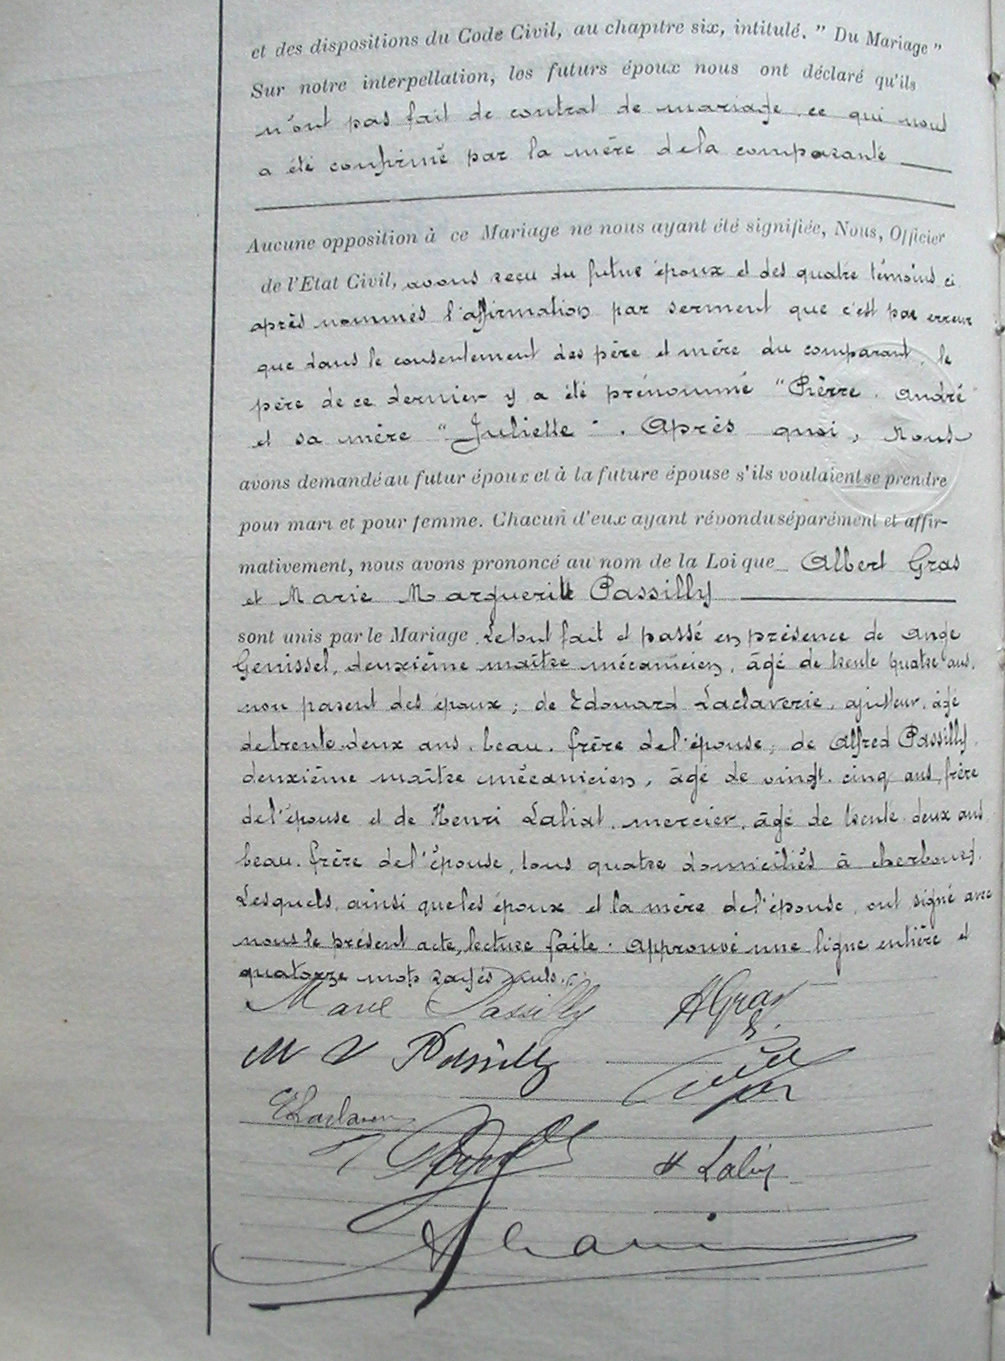 et des dispositions du Code Civil, au chapitre six, intitulé. " Du Mariage "
Sur notre interpellation, les futurs époux nous ont déclaré qu'ils
n'ont pas fait de contrat de mariage, ce qui nous
a été confirmé par la mère de la comparante
Aucune opposition à ce Mariage ne nous ayant été signifiée, Nous, Officier
de l'Etat Civil, avons reçu du futur époux et des quatre témoins ci
après nommés l'affirmation par serment que c'est par erreur
que dans le consentement des père et mère du comparant, le
père de ce dernier y a été prénommé "Pierre André"
et sa mère "Juliette". Après quoi, Nous
avons demandé au futur époux et à la future épouse s'ils voulaient se prendre
pour mari et pour femme. Chacun d'eux ayant répondu séparément et affir-
mativement, nous avons prononcé au nom de la Loi que Albert Gras
et Marie Marguerite Passilly
sont unis par le Mariage Le tout fait et passé en présence de Ange
Genissel, deuxième maître mécanicien, âgé de trente quatre ans,
non parent des époux; de Edouard Laclaverie, ajusteur, âgé
de trente-deux ans, beau-frère de l'épouse; de Alfred Passilly,
deuxième maître mécanicien, âgé de vingt-cinq ans, frère
de l'épouse et de Henri mercier, âgé de trente-deux ans
beau-frère de l'épouse, tous quatre domiciliés à cherbourg.
Lesquels, ainsi que les époux et la mère de l'épouse, ont signé avec
nous le présent acte, lecture faite. Approuvé une ligne entière et
quatorze mots rayés nuls.
Marie Passilly AGras
M V Passilly
ELaclaverie